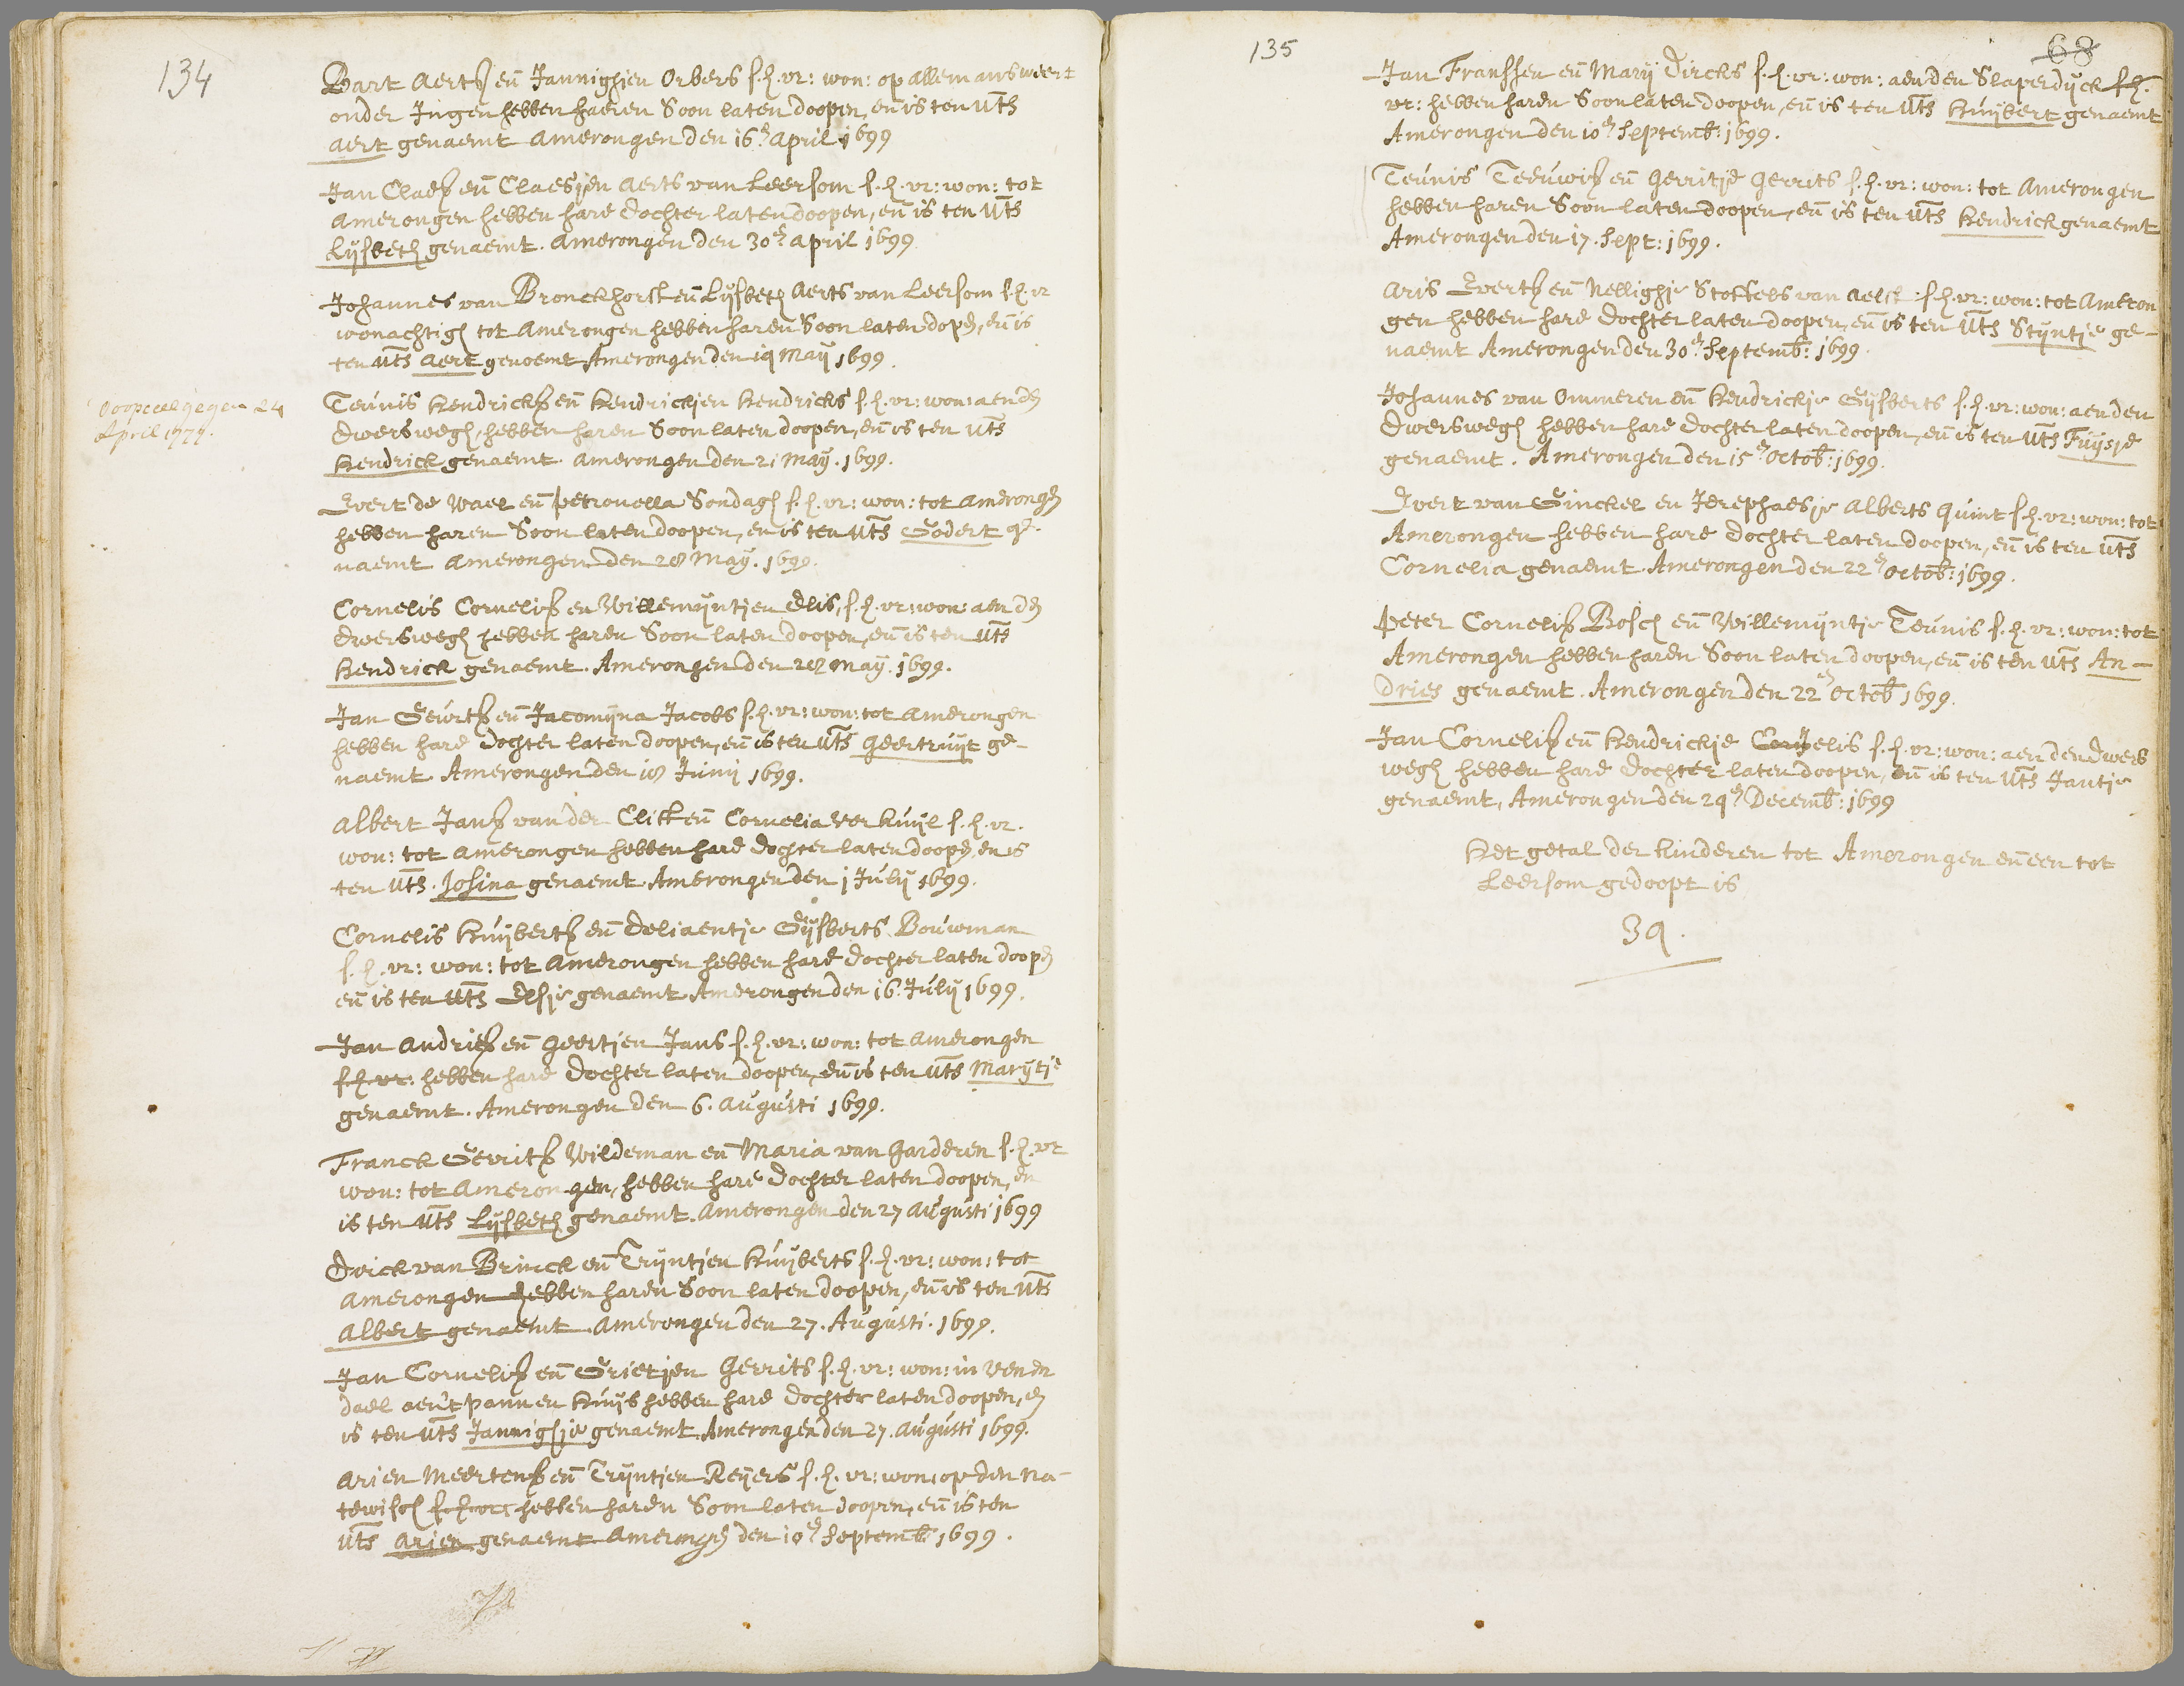 134
Bart Aertsz en Jannighien Orbers s.h.vr: won: op allemansweert
onder Ingen hebben haeren Soon laten doopen, en is ten uts
Aert genaemt Amerongen den 16e April 1699
Jan Claesz en Claesjen Aerts van Leersom s.h.vr: won: tot
Amerongen hebben hare dochter laten doopen, en is ten uts
Lijsbeth genaemt. Amerongen den 30e April 1699
Johannes van Bronckhorst en Lijsbeth Aerts van Leersom s.h.vr
wonachtigh tot Amerongen hebben haren Soon laten dopen, en is
ten uts Aert genoemt Amerongen den 19 Maij 1699.
doopceel gegeven 24
April 1777.
Teunis Hendricksz en Hendrickjen Hendricks s.h.vr: won: aen den
dwerswegh, hebben haren Soon laten doopen, en is ten uts
Hendrick genaemt. Amerongen den 21 Maij. 1699.
Evert de Wael en Petronella Sondagh s.h.vr: won: tot Amerongen
hebben haren Soon laten doopen, en is ten uts Godert ge-
naemt Amerongen den 28 Maij. 1699.
Cornelis Cornelisz en Willemijntjen Elis, s.h.vr: won: aen den
dwerswegh hebben haren Soon laten doopen, en is ten uts
Hendrick genaemt. Amerongen den 28 Maij. 1699.
Jan Geurtsz en Jacomijna Jacobs s.h.vr: won: tot Amerongen
hebben hare dochter laten doopen, en is ten uts Geertruijt ge-
naemt. Amerongen den 18 Junij 1699.
Albert Jansz van der Clift en Cornelia Verkuijl s.h.vr.
won: tot Amerongen hebben hare dochter laten doopen, en is
ten uts. Josina genaemt Amerongen den 1 Julij 1699.
Cornelis Huijbertsz en Deliaentje Gijsberts Bouwman
s.h.vr: won: tot Amerongen hebben hare dochter laten doopen
en is ten uts Elsje genaemt Amerongen den 16. Julij 1699.
Jan Andriesz en Geertjen Jans s.h.vr: won: tot Amerongen
s.h.vr: hebben hare dochter laten doopen, en is ten uts Marijtje
genaemt. Amerongen den 6. Augusti 1699.
Franck Gerritsz Wildeman en Maria van Garderen s.h.vr
won: tot Amerongen, hebben hare dochter laten doopen, en
is ten uts Lijsbeth genaemt. Amerongen den 27 Augusti 1699
Dirick van Brinck en Trijntjen Huijberts s.h.vr: won: tot
Amerongen hebben haren Soon laten doopen, en is ten uts
Albert genaemt. Amerongen den 27. Augusti. 1699.
Jan Cornelisz en Grietjen Gerrits s.h.vr: won: in Venen
dael aen't Pannen Huijs hebben hare dochter laten doopen, en
is ten uts Jannighje genaemt, Amerongen den 27. Augusti 1699.
Arien Meertensz en Trijntjen Reijers s.h.vr: won: op den na-
tewisch s.h.vr: hebben haren Soon laten doopen, en is ten
uts Arien genaemt Amerongen den 10e Septemb 1699.
135
68
Jan Franssen en Marij Dircks s.h.vr: won: aen den Slaperdijck s.h.
vr: hebben haren Soon laten doopen, en is ten uts Huijbert genaemt
Amerongen den 10e Septemb: 1699.
Teunis Teeuwisz en Gerritje Gerrits s.h.vr: won: tot Amerongen
hebben haren Soon laten doopen, en is ten uts Hendrick genaemt
Amerongen den 17. Sept: 1699.
Aris Evertsz en Nellighje Stoffels van Aelst s.h.vr: won: tot Ameron
gen hebben hare dochter laten doopen, en is ten uts Stijntje ge-
naemt Amerongen den 30e Septemb: 1699.
Johannes van Ommeren en Hendrickje Gijsberts s.h.vr: won: aen den
dwerswegh hebben hare dochter laten doopen, en is ten uts Fuijsje
genaemt. Amerongen den 15e Octob: 1699.
Evert van Ginckel en Jerephaesje Alberts Quint s.h.vr: won: tot
Amerongen hebben hare dochter laten doopen, en is ten uts
Cornelia genaemt. Amerongen den 22e Octob: 1699.
Peter Cornelisz Bosch en Willemijntje Teunis s.h.vr: won: tot
Amerongen hebben haren Soon laten doopen, en is ten uts An-
dries genaemt. Amerongen den 22e Octob 1699.
Jan Cornelisz en Hendrickje Cornelis s.h.vr: won: aen den dwers
wegh hebben hare dochter laten doopen, en is ten uts Jantje
genaemt, Amerongen den 29e Decemb: 1699
Het getal der kinderen tot Amerongen en een tot
Leersom gedoopt is
39.